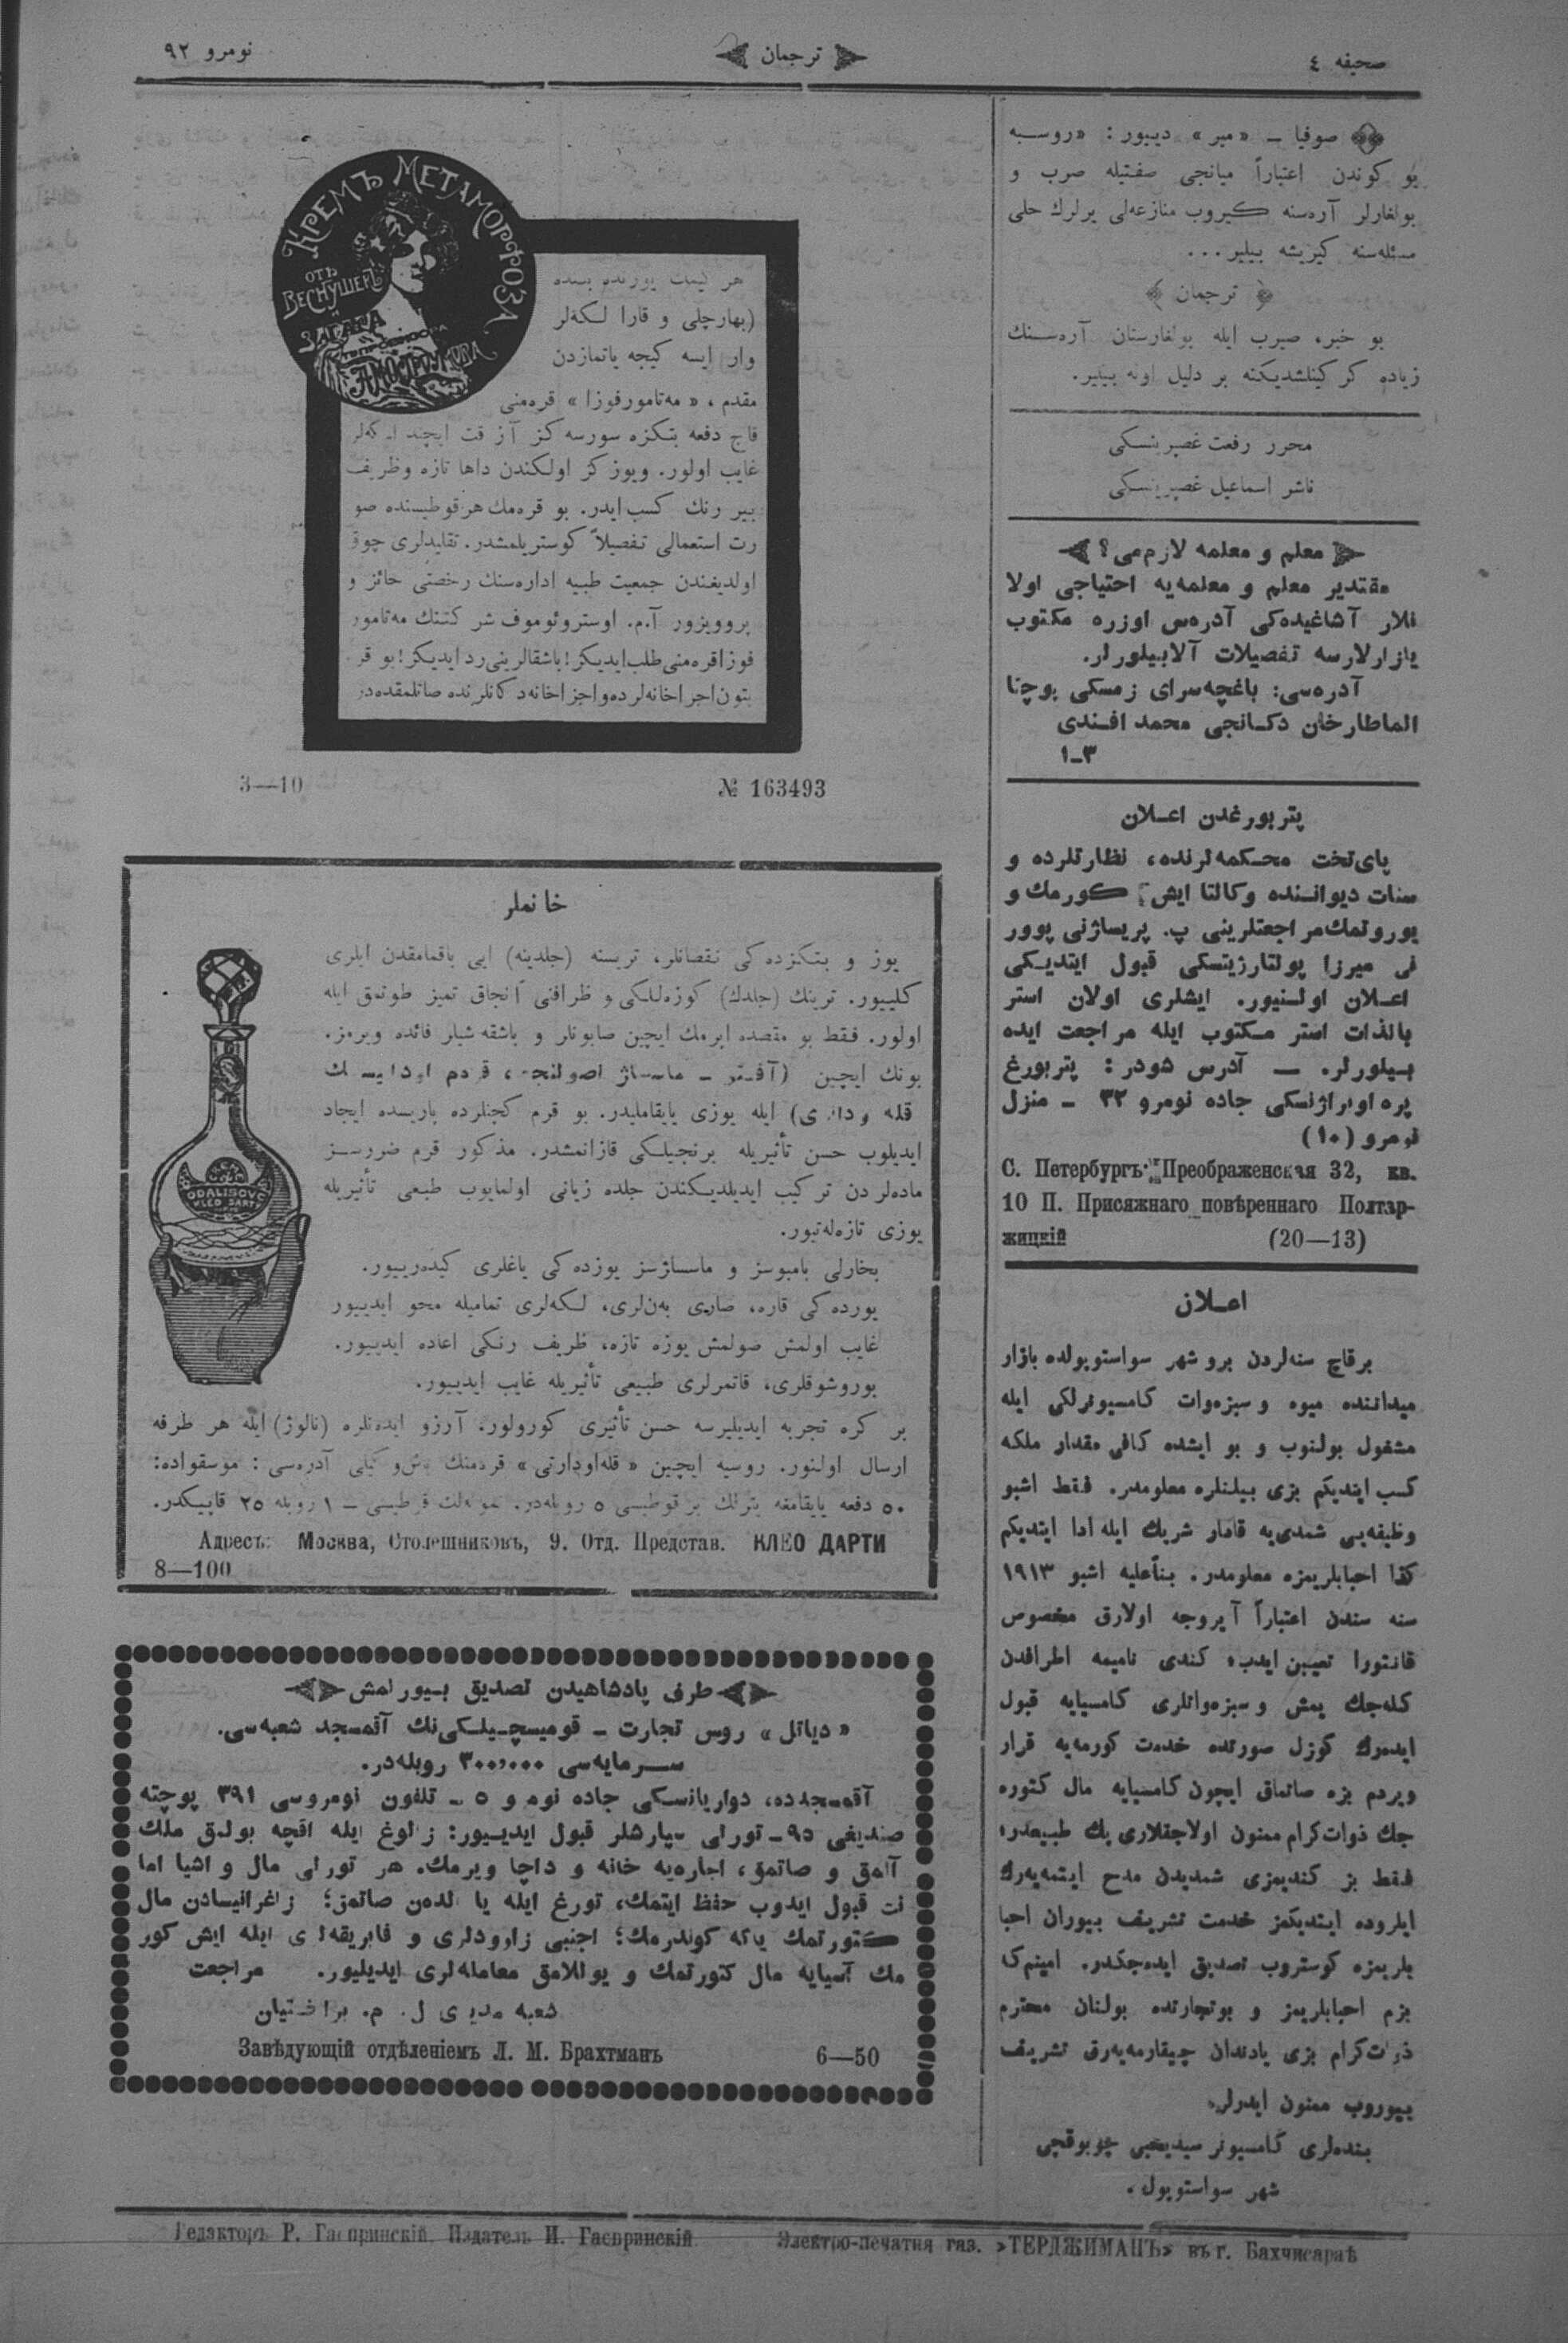 صحیفه ٤
ترجمان
نومرو ٩٢
صوفیا ــ «میر» دییور: «روسیه
بو کوندن اعتباراً میانجی صفتیله صرب و
بولغارلر آره‌سنه کیروب منازعه‌لی یرلرك حلی
مسئله‌سنه کیریشه بیلیر...
﴿ ترجمان ﴾
بو خبر، صرب ایله بولغارستان آره‌سنك
زیاده کرکینلشدیکنه بر دلیل اوله بیلیر.
محرر رفعت غصپرینسکی
ناشر اسماعیل غصپرینسکی
معلم و معلمه لازم‌می؟
مقتدیر معلم و معلمه‌یه احتیاجی اولا
نلار آشاغیده‌کی آدره‌س اوزره مکتوب
یازارلارسه تفصیلات آلابیلورلر.
آدره‌سی: باغچه‌سرای زمسکی پوچتا
الماطارخان دکانجی محمد افندی
٣ــ١
پتربورغدن اعلان
پای‌تخت محکمه‌لرنده، نظارتلرده و
سنات دیواننده وکالتا ایش کورمك و
یوروتمك مراجعتلرینی پ. پریساژنی پوور
نی میرزا پولتارژیتسکی قبول ایتدیکی
اعلان اولنیور. ایشلری اولان استر
بالذات استر مکتوب ایله مراجعت ایده
بیلورلر. — آدرس شودر: پتربورغ
پره‌اوبراژنسکی جاده نومرو ٣٢ ــ منزل
نومرو (١٠)
С. Петербургъ Преображенская 32, кв.
10 П. Присяжнаго повѣреннаго Полтар-
жицкій (20—13)
اعلان
برقاچ سنه‌لردن برو شهر سواستوپولده بازار
میداننده میوه و سبزه‌وات کامسیونرلکی ایله
مشغول بولنوب و بو ایشده کافی مقدار ملکه
کسب ایتدیکم بزی بیلنلره معلومدر. فقط اشبو
وظیفه‌یی شمدی‌یه قادار شریك ایله ادا ایتدیکم
کذا احبابلریمزه معلومدر. بناًعلیه اشبو ١٩١٣
سنه سندن اعتباراً آیروجه اولارق مخصوص
قانتورا تعیین ایدب کندی نامیمه اطرافدن
کله‌جك یمش و سبزه‌واتلری کامسیایه قبول
ایده‌رك کوزل صورتده خدمت کورمه‌یه قرار
ویردم بزه صاتماق ایچون کامسیایه مال کتوره
جك ذوات‌کرام ممنون اولاجقلاری پك طبیعیدر،
فقط بز کندیمزی شمدیدن مدح ایتمه‌یه‌رك
ایلروده ایتدیکمز خدمت تشریف بیوران احبا
بلریمزه کوستروب تصدیق ایده‌جکدر. امینم‌ک
بزم احبابلریمز و بوتجارتده بولنان محترم
ذوات‌کرام بزی یادندان چیقارمه‌یه‌رق تشریف
بیوروب ممنون ایدرلر.
بنده‌لری کامسیونر سیدیحیی چوبوقچی
شهر سواستوپول.
КРЕМЪ МЕТАМОРФОЗА
ОТЪ
ВЕСНУШЕКЪ
ЗАГАРА
ПРОВИЗОРА
А.М.ОСТРОУМОВА
هر کیمك یوزنده بنده
(بهارچلی و قارا لکه‌لر
وار ایسه کیجه یاتمازدن
مقدم، «مه‌تامورفوزا» قره‌منی
قاچ دفعه بتکزه سورسه‌کز آز وقت ایچنده لکه‌لر
غایب اولور. ویوزکز اولکندن داها تازه وظریف
بیر رنك کسب‌ایدر. بو قره‌مك هرقوطیسنده صو
رت استعمالی تفصیلاً کوستریلمشدر. تقلیدلری چوق
اولدیغندن جمعیت طبیه اداره‌سنك رخصتی حائز و
پروویزور آ.م. اوستروئوموف شرکتنك مه‌تامور
فوزا قره‌منی طلب‌ایدیکز! باشقالرینی رد ایدیکز! بو قر
بتون اجزاخانه‌لرده و اجزاخانه‌دکانلرنده صاتلمقده‌در
3—10
№ 163493
خانملر
یوز و بتکزده‌کی نقصانلر، تریسنه (جلدینه) ایی باقمامقدن ایلری
کلییور. ترینك (جلدك) کوزه‌للکی و ظرافتی آنجاق تمیز طوتمق ایله
اولور. فقط بو مقصده ایرمك ایچین صابونلر و باشقه شیلر فائده ویرمز.
بونك ایچین
ایله یوزی یایقاملیدر. بو قرم کچنلرده پاریسده ایجاد
ایدیلوب حسن تأثیریله برنجیلکی قازانمشدر. مذکور قرم ضررسز
ماده‌لردن ترکیب ایدیلدیکندن جلده زیانی اولمایوب طبیعی تأثیریله
یوزی تازه‌له‌تیور.
بخارلی بامبوسز و ماساژسز یوزده‌کی یاغلری کیده‌رییور.
یوزده‌کی قاره، صاری به‌ن‌لری، لکه‌لری تمامیله محو ایدییور
غایب اولمش صولمش یوزه تازه، ظریف رنکی اعاده ایدییور.
بوروشوقلری، قاتمرلری طبیعی تأثیریله غایب ایدییور.
بر کره تجربه ایدیلیرسه حسن تأثیری کورولور. آرزو ایده‌نلره (نالوژ) ایله هر طرفه
ارسال اولنور. روسیه ایچین «قله‌اودارتی» قره‌منك وکیلی آدره‌سی: موسقواده:
٥٠ دفعه یایقامغه یترلك بر قوطیسی ٥ روبله‌در. نمونه‌لك قوطیسی ــ ١ روبله ٢٥ قاپیکدر.
ODALISQUE
CLEO DARTY
Адресъ: Москва, Столешниковъ, 9. Отд. Представ. КЛЕО ДАРТИ
8—100
طرف پادشاهیدن تصدیق بیورلمش
«دیاتل» روس تجارت ــ قومیسچیلکی‌نك آقمسجد شعبه‌سی.
سرمایه‌سی ٣٠٠،٠٠٠ روبله‌در.
آقمسجدده، دواریانسکی جاده نومرو ٥ ــ تلفون نومروسی ٣٩١ پوچته
صندیغی ٩٥ــ تورلی سپارشلر قبول ایدییور: زالوغ ایله اقچه بولمق ملك
آلمق و صاتمق، اجاره‌یه خانه و داچا ویرمك. هر تورلی مال و اشیا اما
نت قبول ایدوب حفظ ایتمك، تورغ ایله یا الده‌ن صاتمق؛ زاغرانیسادن مال
کتورتمك یاکه کوندرمك؛ اجنبی زاوودلری و فابریقه‌لری ایله ایش کور
مك آسیایه مال کتورتمك و یوللامق معامله‌لری ایدیلیور. مراجعت
شعبه مدیری ل. م. براختمان
Завѣдующій отдѣленіемъ Л. М. Брахтманъ 6—50
Редакторъ Р. Гаспринскій. Издатель И. Гаспринскій
Электро-печатня газ. »ТЕРДЖИМАНЪ» въ г. Бахчисараѣ